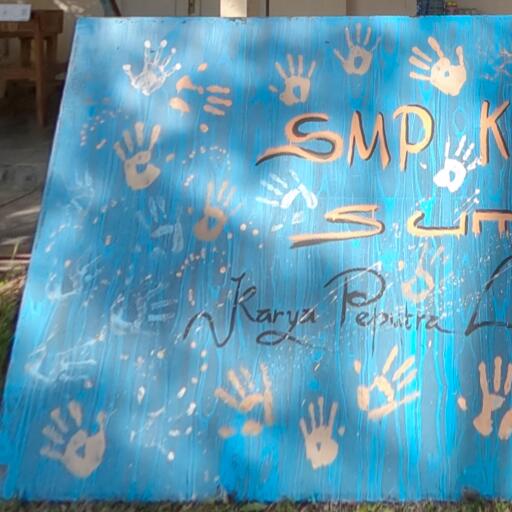 SMP K
Sum
Karya Peputra L